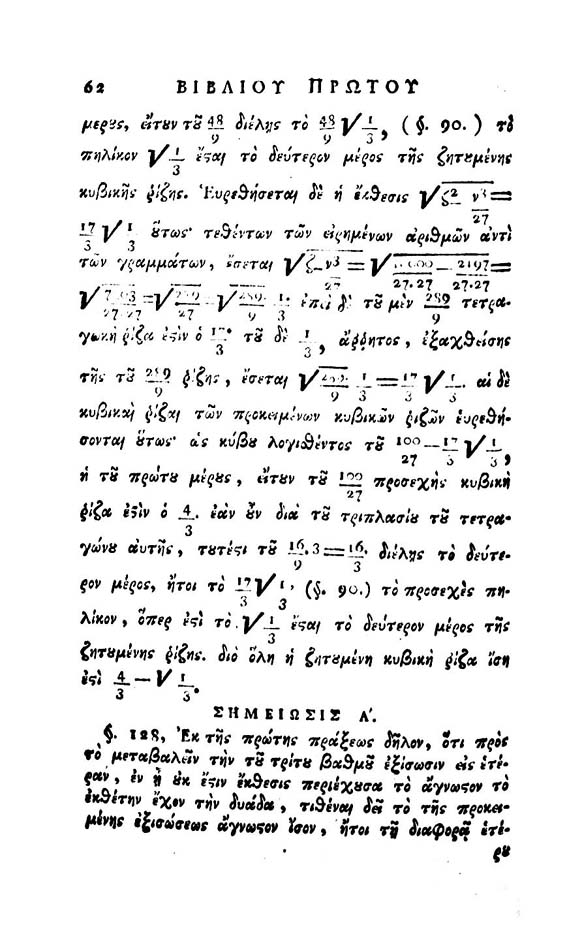 62 ΒΙΒΛΙΟΥ ΠΡΩΤΟΥ
μερȣς, εἴτȣν τȣ͂ 48/9 διέλῃς τὸ 48/9 √ 1/3, (§. 90.) τὸ
πηλίκον √ 1/3 ἔςαι τὸ δεύτερον μέρος τῆς ζητȣμένης
κυβικῆς ῥίζης. Ἑυρεθήσεται δὲ ἡ ἔκθεσις √ζ² υ³/27 =
17/3 √ 1/3 ὅτως· τεθέντων τῶν εἰρημένων ἀριθμῶν ἀντὶ
τῶν γραμμάτων, ἔσεται √ζ – υ³/27 = √ /27.27 – 2197/27.27 =
√ /27.27 = √ /27 √289/9 1/3. ἐπεὶ δὲ τȣ͂ μὲν 289/9 τετρα-
γωνικὴ ῥίζα ἐςὶν ὁ 17/3 τȣ͂ δὲ 1/3, ἄῤῥητος, ἐξαχθείσης
τῆς τȣ͂ 289/9 ῥίζης, ἔσεται √289/9 1/3 = 17/3 √ 1/3. αἱ δὲ
κυβικαὶ ῥίζαι τῶν προκειμένων κυβικῶν ῥιζῶν ἑυρεθή-
σονται ȣ̔́τως· ὡς κύβȣ λογιθέντος τȣ͂ 100/27 – 17/3 √ 1/3,
ἡ τȣ͂ πρώτȣ μέρȣς, εἴτȣν τȣ͂ 100/27 προσεχὴς κυβικὴ
ῥίζα ἐςὶν ὁ 4/3. ἐὰν ȣ̓͂ν διὰ τȣ͂ τριπλασίȣ τȣ͂ τετρα-
γώνȣ ἀυτῆς, τȣτέςι τȣ͂ 16/9.3 = 16/3. διέλῃς τὸ δεύτε-
ρον μέρος, ἤτοι τὸ 17/3 √ 1/3, (§. 90.) τὸ προσεχὲς πη-
λίκον, ὅπερ ἐςὶ τὸ √ 1/3 ἔςαι τὸ δεύτερον μέρος τῆς
ζητȣμένης ῥίζης. διὸ ὅλη ἡ ζητȣμένη κυβικὴ ῥίζα ἴση
ἐςὶ 4/3 – √ 1/3.
ΣΗΜΕΙΩΣΙΣ Α΄.
§. 128, Ἐκ τῆς πρώτης πράξεως δῆλον, ὅτι πρὸς
τὸ μεταβαλεῖν τὴν τȣ͂ τρίτȣ βαθμȣ͂ ἐξίσωσιν εἰς ἑτέ-
ραν, ἐν ᾗ ȣ̓κ ἔςιν ἔκθεσις περιέχȣσα τὸ ἄγνωςον τὸ
ἐκθέτην ἔχον τὴν δυάδα, τιθέναι δεῖ τὸ τῆς προκει-
μένης ἐξισώσεως ἄγνωςον ἴσον, ἤτοι τῇ διαφορᾷ ἑτέ-
ρȣ